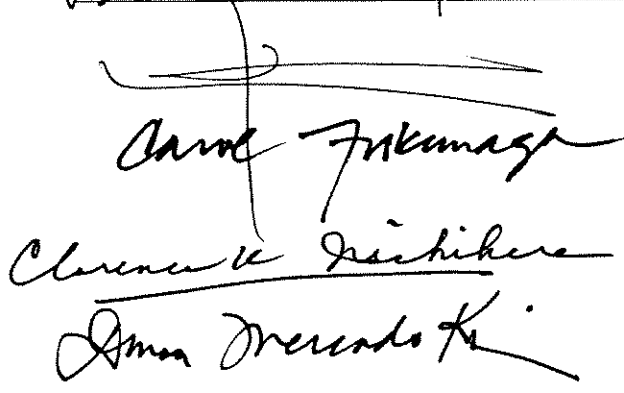 Carol Fukunaga
Clarence K Nishihara
Donna Mercado Kim